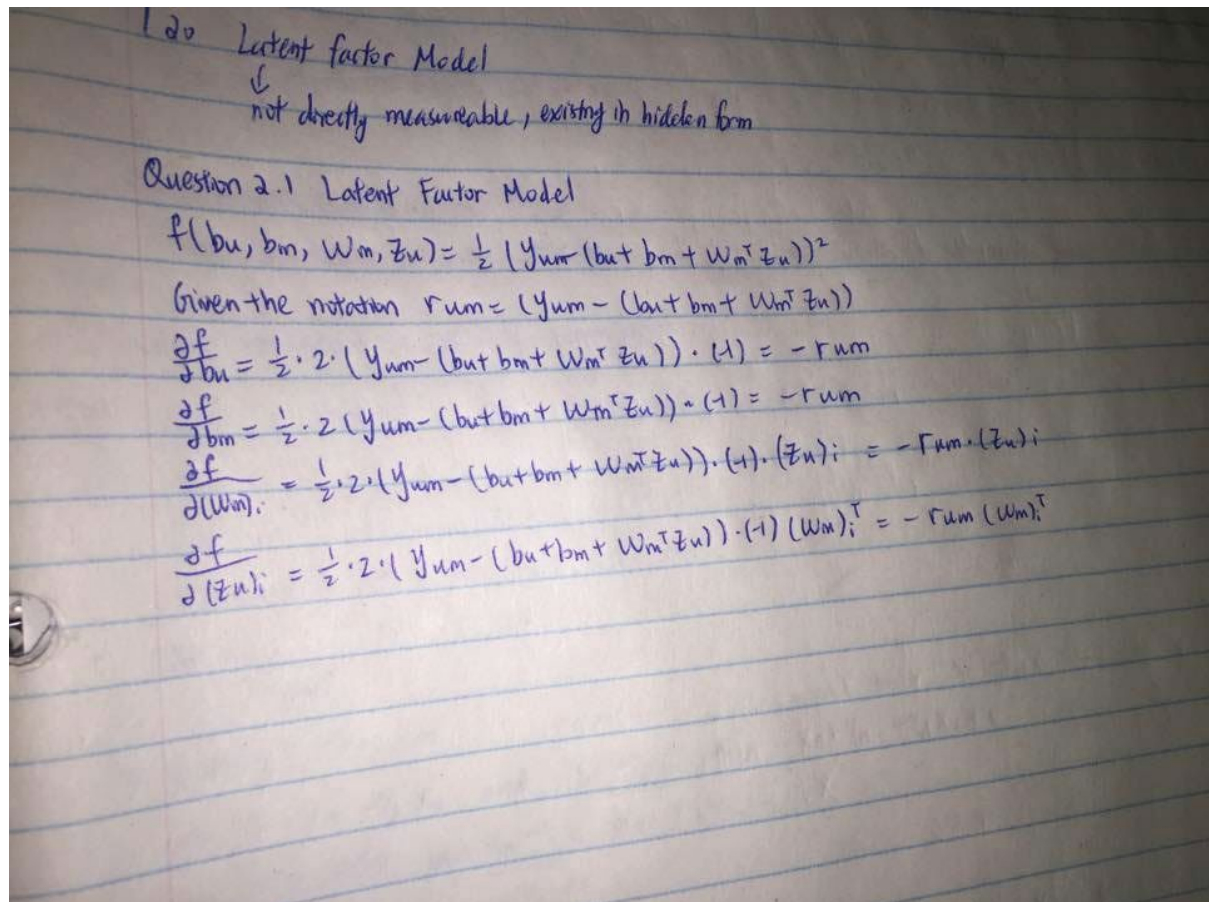 20 Latent factor Model
↓
not directly measureable, existing in hidden form
Question 2.1 Latent Factor Model
f(bu, bm, Wm, Zu) = 1/2 (yum- (bu + bm + Wm^T Zu))²
Given the notation rum = (yum - (bu + bm + Wm^T Zu))
∂f/∂bu = 1/2 · 2 · (yum - (bu + bm + Wm^T Zu)) · (-1) = -rum
∂f/∂bm = 1/2 · 2 (yum - (bu + bm + Wm^T Zu)) · (-1) = -rum
∂f/∂(Wm)i = 1/2 · 2 · (yum - (bu + bm + Wm^T Zu)) · (-1) · (Zu)i = -rum · (Zu)i
∂f/∂(Zu)i = 1/2 · 2 · (yum - (bu + bm + Wm^T Zu)) · (-1) (Wm)i^T = -rum (Wm)i^T